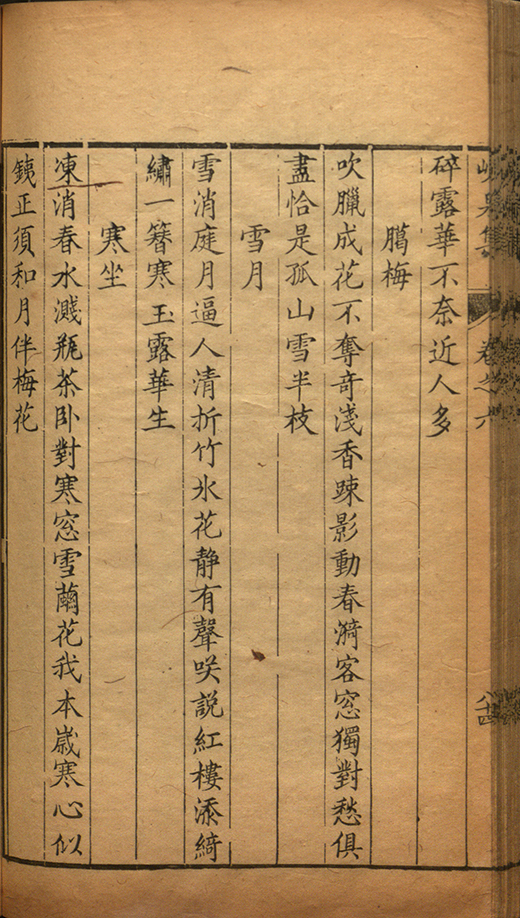 峴泉集 卷之六 八十四
碎露華不奈近人多
臈梅
吹臘成花不奪奇淺香踈影動春漪客窓獨對愁俱
盡恰是孤山雪半枝
雪月
雪消庭月逼人清折竹氷花静有聲咲説紅樓添綺
繡一簪寒玉露華生
寒坐
凍消春水濺瓶茶卧對寒窓雪繭花我本嵗寒心似
鐵正須和月伴梅花